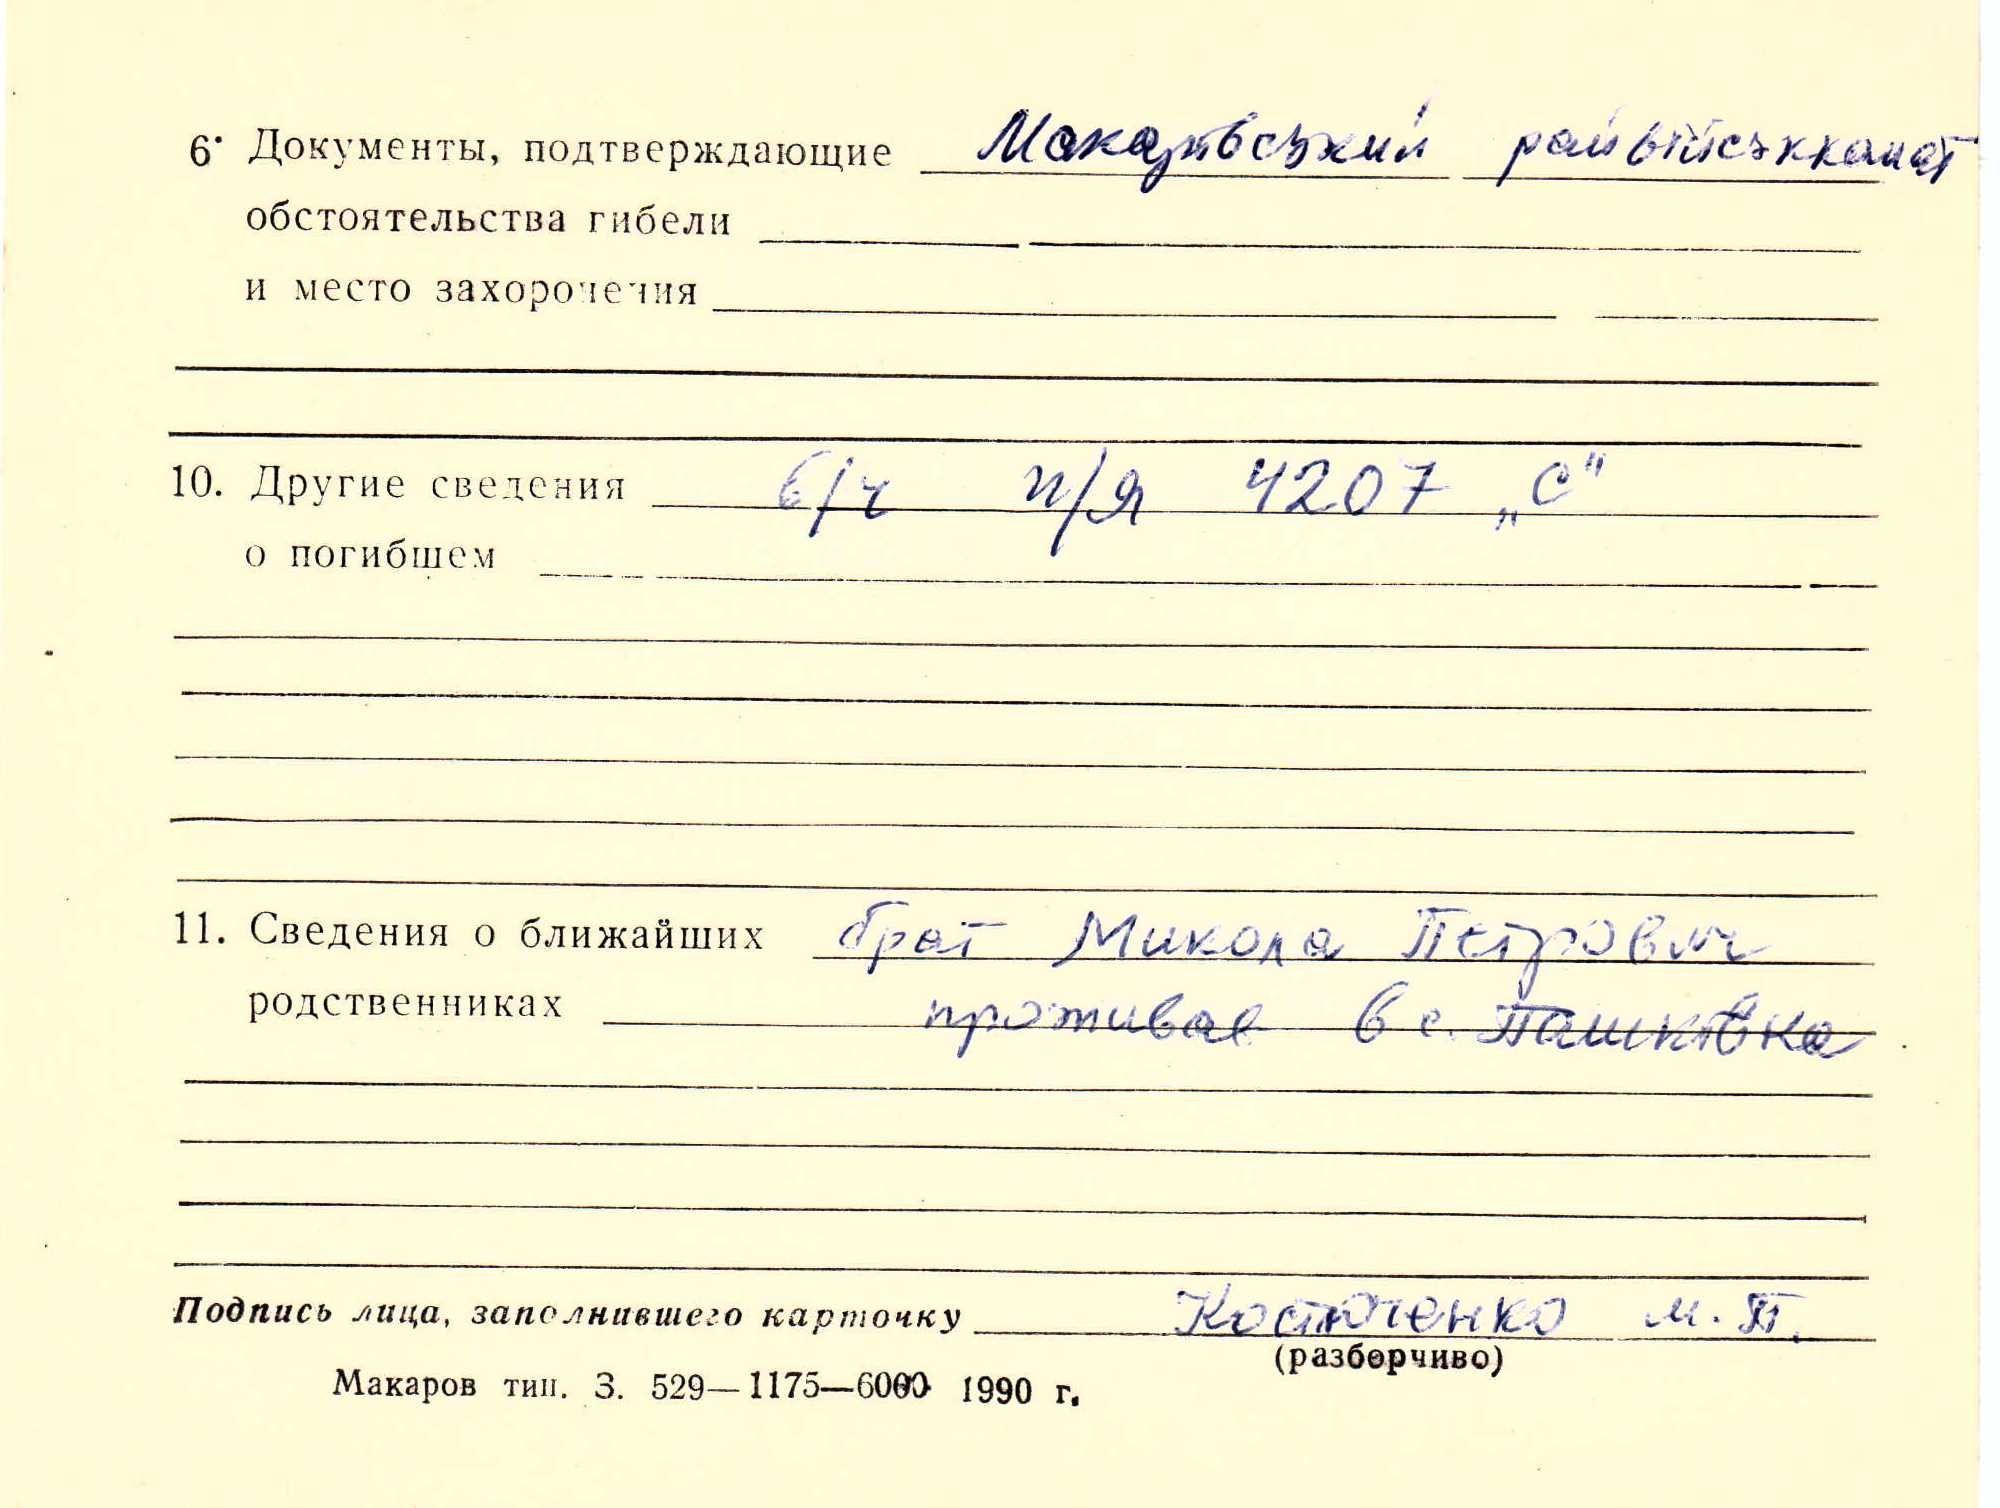 6. Документы, подтверждающие Макарівський райвійськкомат
обстоятельства гибели
и место захоронения
10. Другие сведения в/ч п/я 4207 „С"
о погибшем
11. Сведения о ближайших брат Микола Петрович
родственниках проживає в с. Пашківка
Подпись лица, заполнившего карточку Костюченко М. П.
(разборчиво)
Макаров тип. З. 529—1175—6000 1990 г.